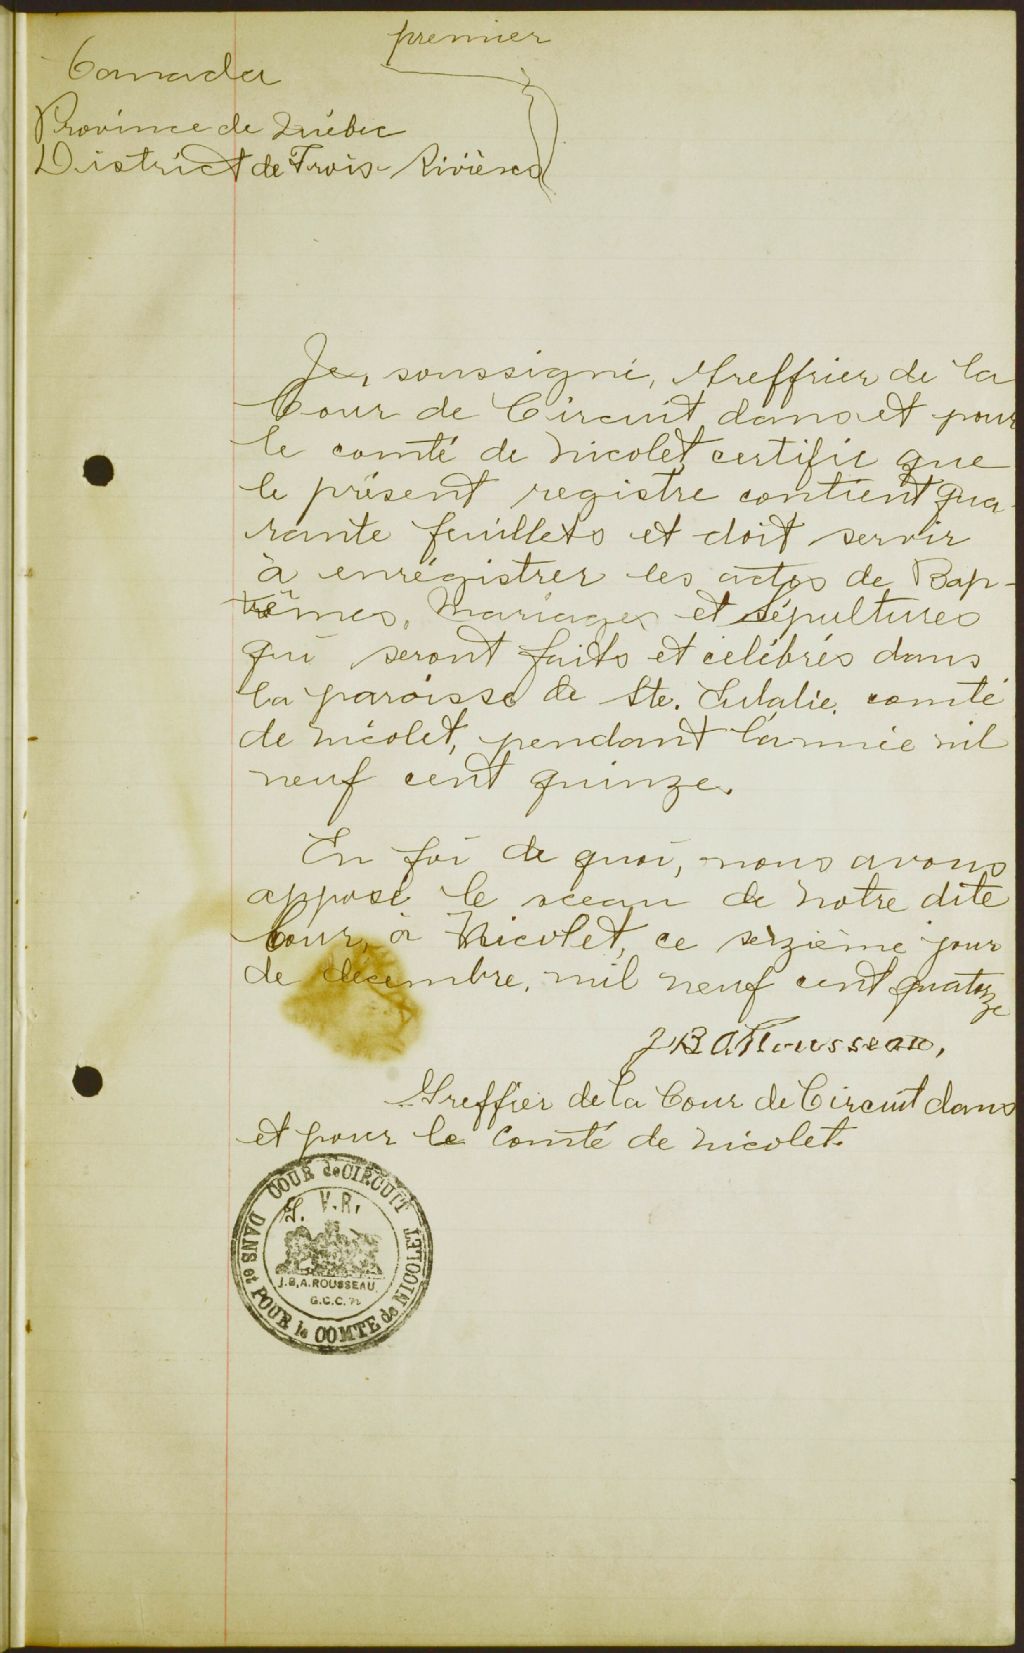 premier
Canada
Province de Québec
District de Trois-Rivières
Je, soussigné, Greffier de la
Cour de Circuit dans et pour
le comté de Nicolet certifie que
le présent registre contient qua-
rante feuillets et doit servir
à enrégistrer les actes de Bap-
têmes, Mariages et Sépultures
qui seront faits et célébrés dans
la paroisse de Ste. Eulalie, comté
de Nicolet, pendant l'année mil
neuf cent quinze.
En foi de quoi, nous avons
apposé le sceau de notre dite
Cour, à Nicolet, ce seizième jour
de décembre, mil neuf cent quatorze
J B A Rousseau,
Greffier de la Cour de Circuit dans
et pour le Comté de Nicolet.
COUR de CIRCUIT
DANS et POUR le COMTE de NICOLET
V.R.
J.B.A.ROUSSEAU.
G.C.C.